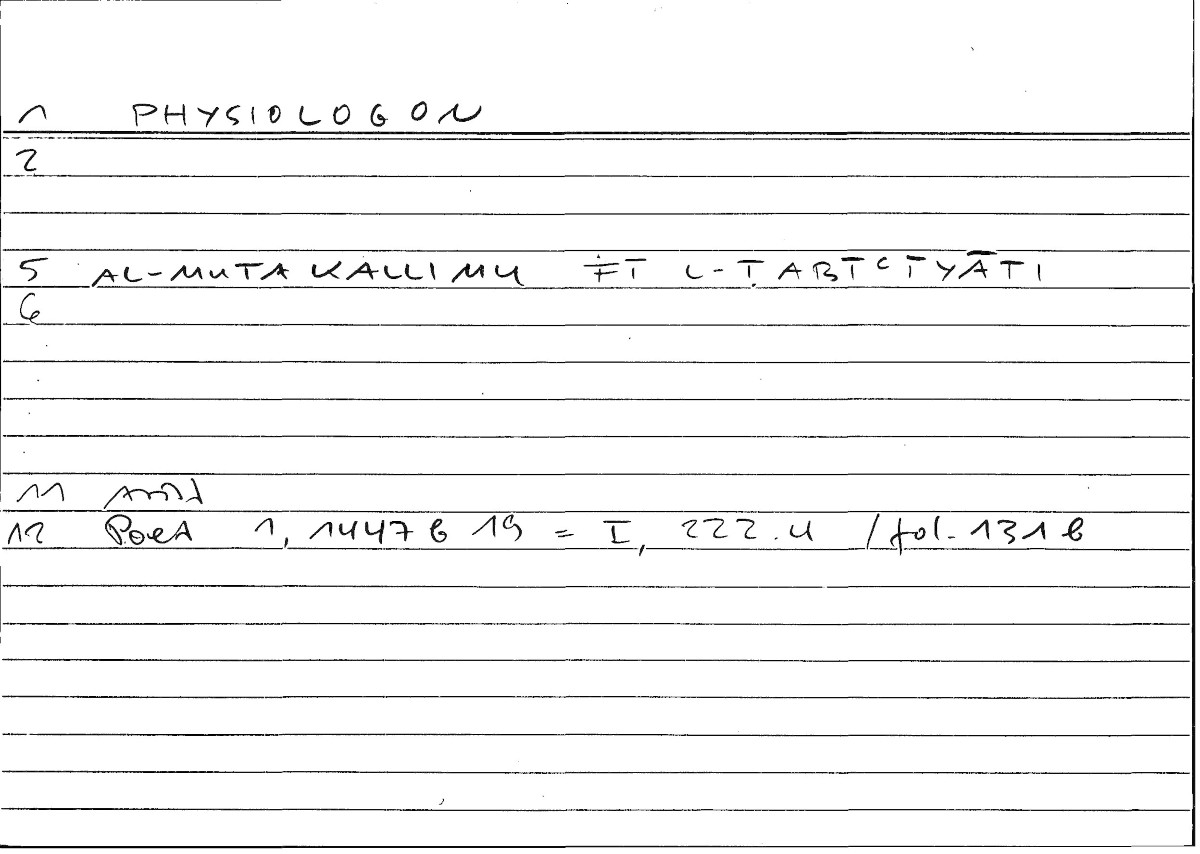 1 PHYSIOLOGON
2
5 AL-MUTAKALLIMU FĪ L-ṬABĪʿĪYĀTI
6
11 Arist
12 Poet 1, 1447 b 19 = I, 222.4 / fol. 131 b